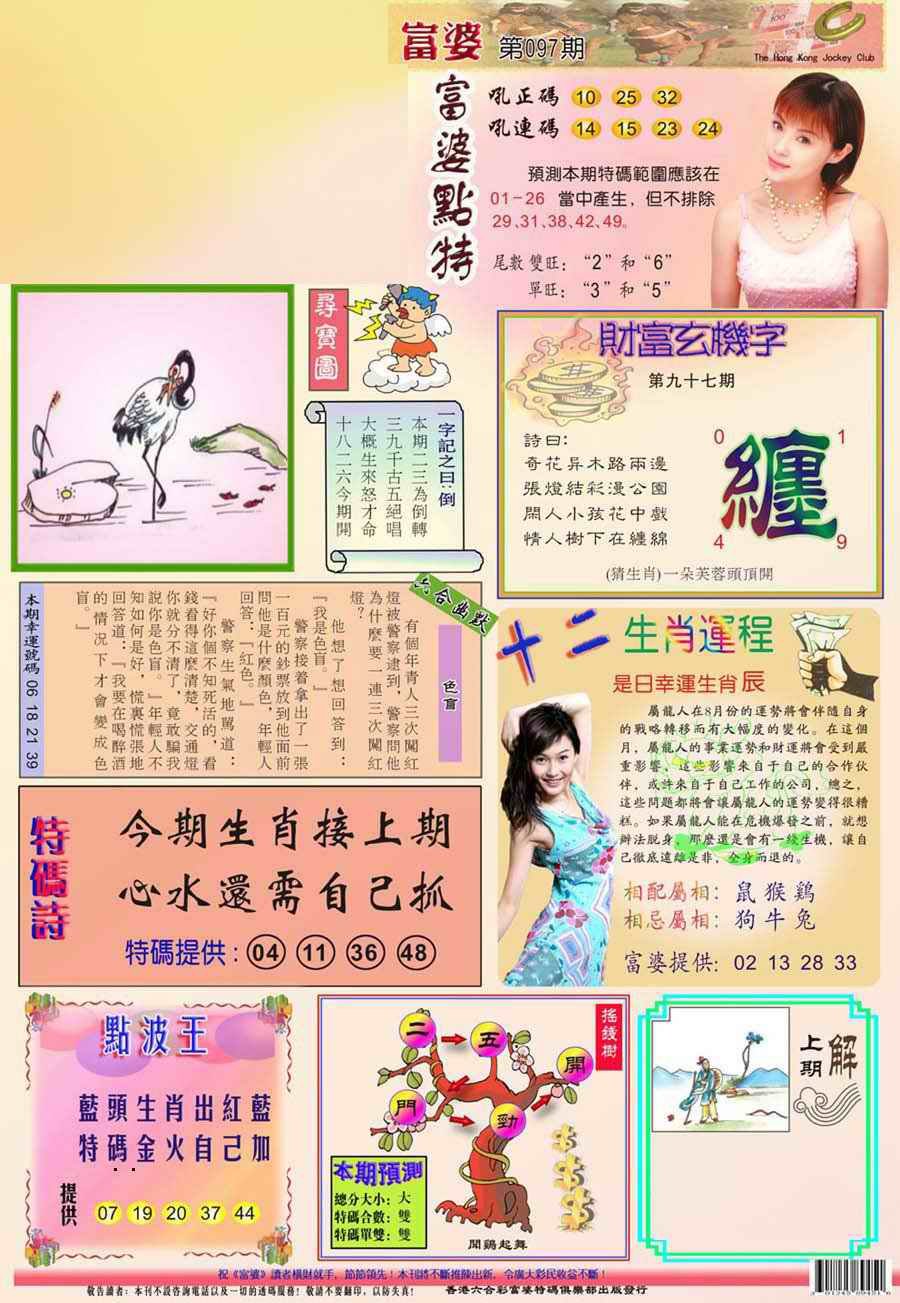 富婆 第097期
The Hong Kong Jockey Club
富婆點特
吼正碼 10 25 32
吼連碼 14 15 23 24
預測本期特碼範圍應該在
01-26 當中產生，但不排除
29、31、38、42、49。
尾數雙旺：“2”和“6”
單旺：“3”和“5”
尋寶圖
一字記之曰：倒
本期二三為倒轉
三九千古五絕唱
大概生來怒才命
十八二六今期開
財富玄機字
第九十七期
詩曰：
奇花异木路兩邊
張燈結彩漫公園
閒人小孩花中戲
情人樹下在纏綿
0 1
纏
4 9
(猜生肖)一朵芙蓉頭頂開
六合幽默
色盲
有個年青人三次闖紅
燈被警察逮到，警察問他
為什麼要一連三次闖紅
燈？
他想了想回答到：
『我是色盲。』
警察接着拿出了一張
一百元的鈔票放到他面前
問他是什麼顏色，年輕人
回答：『紅色。』
警察生氣地罵道：
『好你個不知死活的，看
錢看得這麼清楚，交通燈
你就分不清了，竟敢騙我
說你是色盲。』年輕人不
知如何是好，慌裏慌張地
回答道：『我要在喝醉酒
的情况下才會變成色
盲。』
本期幸運號碼 06 18 21 39
十二生肖運程
是日幸運生肖辰
屬龍人在8月份的運勢將會伴隨自身
的戰略轉移而有大幅度的變化。在這個
月，屬龍人的事業運勢和財運將會受到嚴
重影響，這些影響來自于自己的合作伙
伴，或許來自于自己工作的公司，總之，
這些問題都將會讓屬龍人的運勢變得很糟
糕。如果屬龍人能在危機爆發之前，就想
辦法脫身，那麼還是會有一綫生機，讓自
己徹底遠離是非，全身而退的。
相配屬相：鼠猴鷄
相忌屬相：狗牛兔
富婆提供：02 13 28 33
特碼詩
今期生肖接上期
心水還需自己抓
特碼提供：04 11 36 48
點波王
藍頭生肖出紅藍
特碼金火自己加
提供 07 19 20 37 44
搖錢樹
二 五
門 勁 開
本期預測
總分大小：大
特碼合數：雙
特碼單雙：雙
聞鷄起舞
上期解
祝《富婆》讀者橫財就手，節節領先！本刊將不斷推陳出新，令廣大彩民收益不斷！
敬告讀者：本刊不設咨詢電話以及一切的透碼服務！敬請不要翻印，以防失真！ 香港六合彩富婆特碼俱樂部出版發行